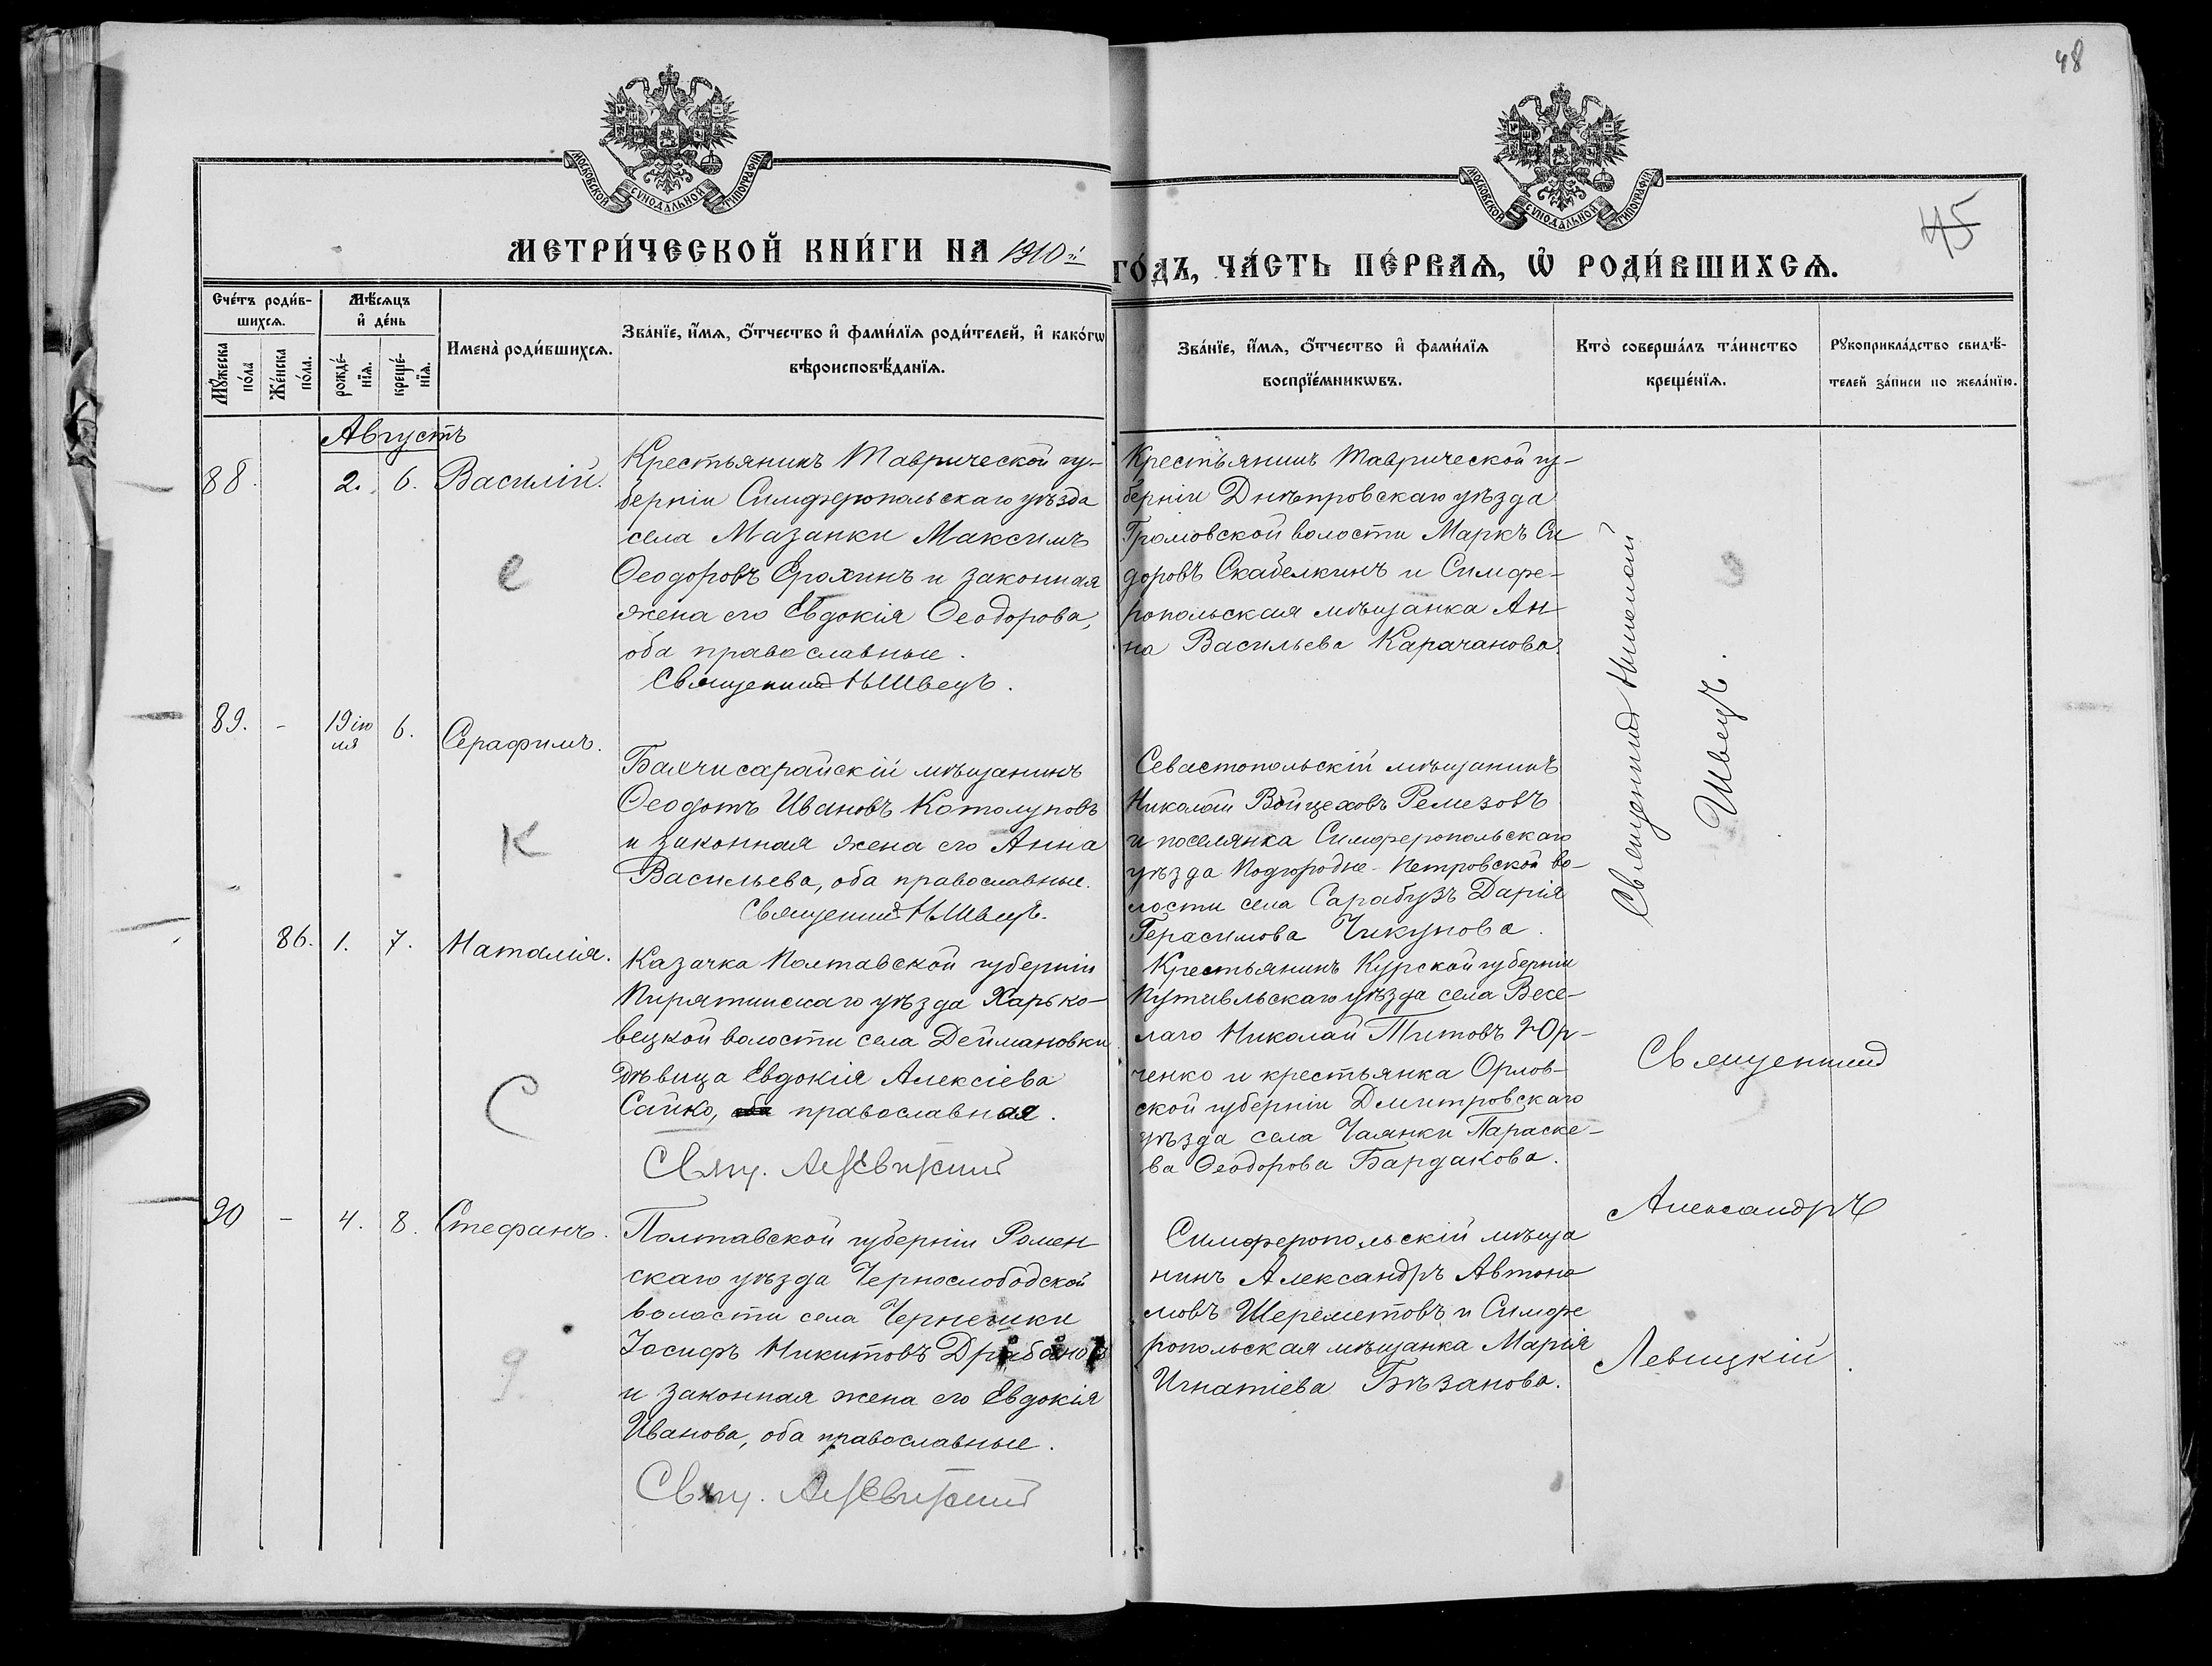 48
МОСКОВСКОЙ СѴНОДАЛЬНОЙ ТИПОГРАФІИ
МОСКОВСКОЙ СѴНОДАЛЬНОЙ ТИПОГРАФІИ
45
МЕТРИ́ЧЕСКОЙ КНИ́ГИ НА 1910й
ГО́ДЪ, ЧА́СТЬ ПЕ́РВАѦ, Ѿ РОДИ́ВШИХСѦ.
Сче́тъ роди́в-
шихсѧ.
Мꙋ́жеска по́ла
Же́нска по́ла.
Мѣ́сѧцъ
и҆ де́нь
рожде́-
нїѧ.
креще́-
нїѧ.
Имена̀ роди́вшихсѧ.
Зва́нїе, и҆́мѧ, ѻ҆́тчество и҆ фами́лїѧ роди́телей, и҆ како́гѡ
вѣроисповѣ́данїѧ.
Зва́нїе, и҆́мѧ, ѻ҆́тчество и҆ фами́лїѧ
воспрїе́мникѡвъ.
Кто̀ соверша́лъ та́инство
креще́нїѧ.
Рꙋкоприкла́дство свидѣ́-
телей за́писи по жела́нїю.
Августъ
88.
2.
6.
Василій.
е
Крестьянинъ Таврической гу-
берніи Симферопольскаго уѣзда
села Мазанки Максимъ
Ѳеодоровъ Ерохинъ и законная
жена его Евдокія Ѳеодорова,
оба православные.
Священник Н Швецъ.
Крестьянинъ Таврической гу-
берніи Днѣпровскаго уѣзда
Громовской волости Маркъ Си
доровъ Скабелкинъ и Симфе-
ропольская мѣщанка Ан
на Васильева Карачанова.
Священник Николай
Швецъ.
89.
-
19 ію
ля
6.
Серафимъ.
К
Бахчисарайскій мѣщанинъ
Ѳеодотъ Ивановъ Котолуповъ
и законная жена его Анна
Васильева, оба православные.
Священник Н Швецъ.
Севастопольскій мѣщанинъ
Николай Войцеховъ Ремезовъ
и поселянка Симферопольскаго
уѣзда Подгородне-Петровской во-
лости села Сарабузъ Дарія
Герасимова Чикунова.
86.
1.
7.
Наталія.
С
Казачка Полтавской губерніи
Пирятинскаго уѣзда Харько-
вецкой волости села Деймановки
дѣвица Евдокія Алексіева
Сайко, оба православная.
Свящ. А Левицкій
Крестьянинъ Курской губерніи
Путивльскаго уѣзда села Весе-
лаго Николай Титовъ Юр-
ченко и крестьянка Орлов-
ской губерніи Дмитровскаго
уѣзда села Чаянки Параске-
ва Ѳеодорова Бардакова.
Священник
Александръ
Левицкій.
90
-
4.
8.
Стефанъ.
Полтавской губерніи Ромен
скаго уѣзда Чернослободской
волости села
Іосифъ Никитовъ
и законная жена его Евдокія
Иванова, оба православные.
Свящ. А Левицкій
Симферопольскій мѣща
нинъ Александръ Автоно
мовъ Шереметовъ и Симфе
ропольская мѣщанка Марія
Игнатіева Бѣзанова.